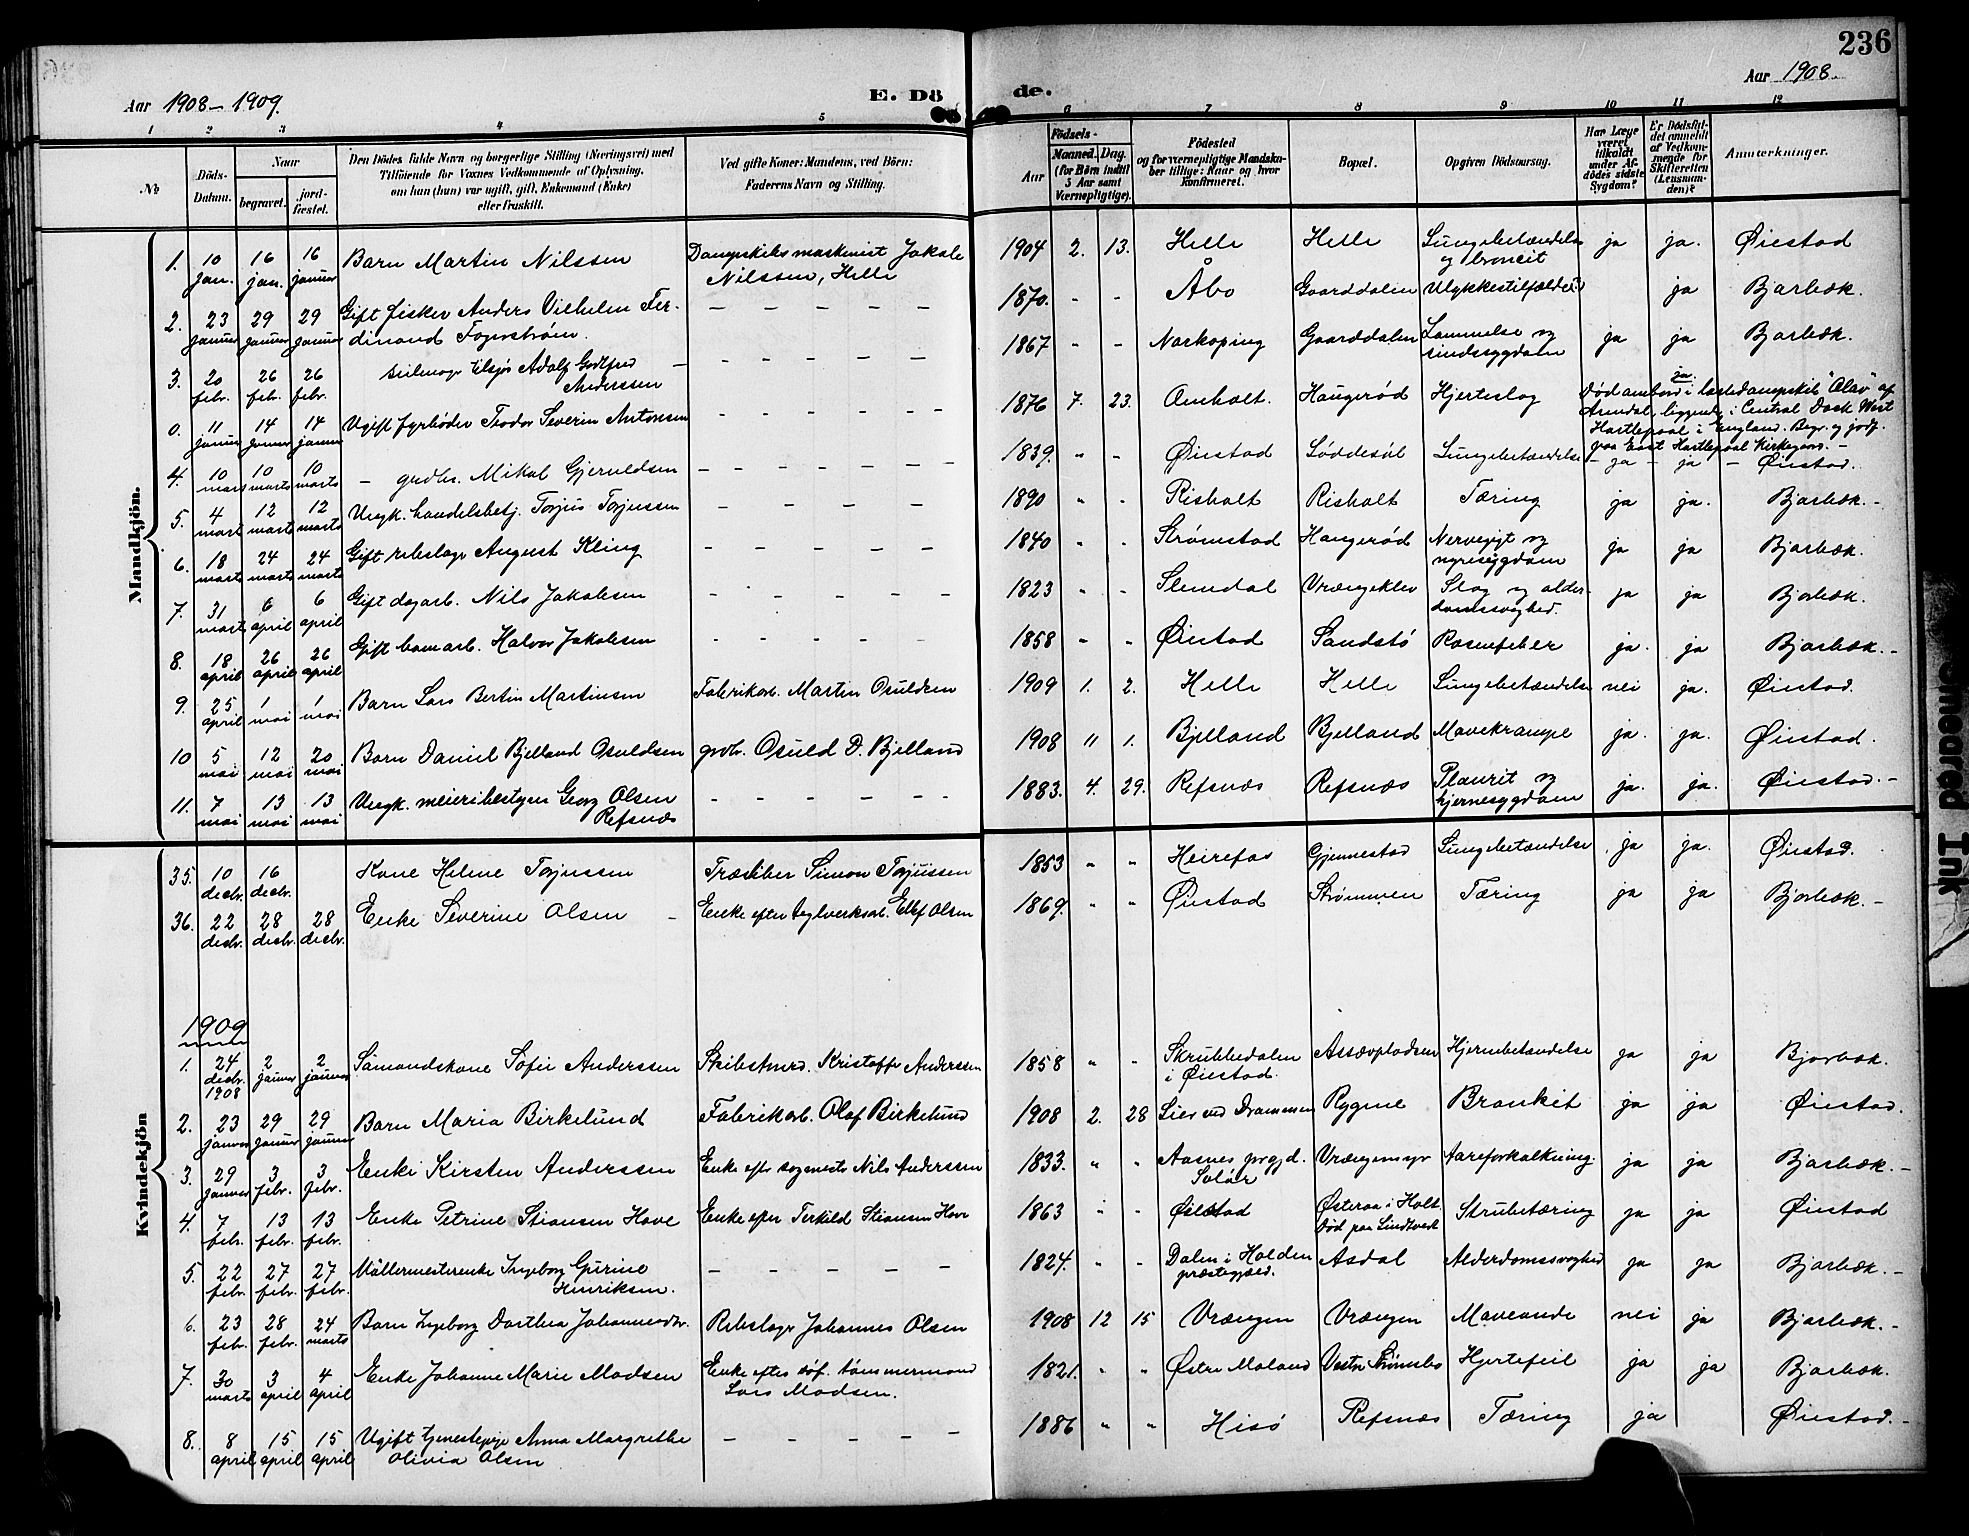 236
Aar 1908-1909.
E. Dö
de.
Aar 1908.
1 2 3 4 5 6 7 8 9 10 11 12
No
Döds-Datum.
Naar
begravet.
jord-fæstet.
Den Dödes fulde Navn og borgerlige Stilling (Næringsvei) med
Tilföiende for Voxnes Vedkommende af Oplysning,
om han (hun) var ugift, gift, Enkemand (Enke)
eller fraskilt.
Ved gifte Koner: Mandens, ved Börn:
Faderens Navn og Stilling.
Födsels-
Aar
Maaned. Dag.
(for Børn indtil
5 Aar samt
Værnepligtige).
Födested
og for værnepligtige Mandska-
ber tillige: Naar og hvor
konfirmeret.
Bopæl.
Opgiven Dödsaarsag.
Har Læge
været
tilkaldt
under Af-
dödes sidste
Sygdom?
Er Dødsfal-
det anmeldt
af Vedkom-
mende for
Skifteretten
(Lensman-
den)?
Anmærkninger.
Mandkjön.
1. 10 jan. 16 jan. 16 januar Barn Martin Nilssen Dampskibsmaskinist Jakob Nilssen, Helle 1904 2. 13. Helle Helle Lungebetændelse og broncit ja ja. Øiestad
2. 23 januar 29 januar 29 januar Gift fisker Anders Vilhelm Ferdinand Fagerstrøm. – – – – – 1870. " " Åbo Gaarddalen Ulykkestilfælde ja Bjorbæk.
3. 20 febr. 26 febr. 26 febr. seilmager Adolf Godtfred Anderssen – – – – – 1867 " " Norkoping Gaarddalen Lammelse og sindssygdom ja ja Bjorbæk.
0. 11 januar 14 januar 14 januar Ugift fyrbøder Teodor Severin Antonsen – – – – – 1876 7. 23. Omholt. Haugerød Hjerteslag ja. Død ombord i lastedampskib "Olav" af Arendal, liggende i Central Dock West Hartlepool i England. Begr. og jordf. paa East Hartlepool Kirkegaard. –
4. 10 mars 10 marts 10 marts – grdbr. Mikal Gjeruldsen – – – – – – 1839. " " Øiestad Løddesøl Lungebetændelse – ja – ja – Øiestad.
5. 4 mart 12 marts 12 marts Ungk. handelsbetj. Torjus Torjussen – – – – – 1890 " " Risholt Risholt Tæring ja ja. Bjorbæk. –
6. 18 marts 24 marts 24 marts Gift rebslager August Kling – – – – – 1840 " " Strømstad Haugerød Nervegigt og nyresygdom ja ja Bjorbæk.
7. 31 marts 6 april 6 april Gift dagarb. Nils Jakobsen – – – – – 1823 " " Slemdal Vrængeklev Slag og alderdomssvaghed. ja ja Bjorbæk.
8. 18 april 26 april 26 april Gift bomarb. Halvor Jakobsen – – – – – 1858 " " Øiestad Sandstø Rosenfeber ja. ja Bjorbæk. –
9. 25 april 1 mai 1 mai Barn Lars Bertin Martinsen Fabrikarb. Martin Osuldsen 1909 1. 2. Helle Helle Lungebetændelse nei ja. Øiestad.
10 5 mai 12 mai 20 mai Barn Daniel Bjelland Osuldsen grdb. Osuld D. Bjelland 1908 11 1. Bjelland Bjelland Mavekrampe ja. ja. Øiestad.
11. 7 mai 13 mai 13 mai Ungk. meieribestyrer Georg Olsen Refsnæs – – – – – – 1883. 4. 29. Refsnæs Refsnæs Pleurit og hjernesygdom ja. ja. Øiestad. –
Kvindekjön
35. 10 decbr. 16 decbr. Kone Helene Torjussen Træskiber Simon Torjussen 1853 " " Heirefos Gjennestad Lungebetændelse ja ja. Øiestad.
36. 22 decbr. 28 decbr. 28 decbr. Enke Severine Olsen – Enke efter teglverksarb. Ellef Olsen 1869. " " Øiestad Strømmen Tæring ja ja Bjorbæk. –
1909
1. 24 decbr. 1908 2 januar 2 januar Sømandskone Sofie Anderssen Skibstmrd. Kristoffer Anderssen 1858 " " Skrubbedalen i Øiestad. Assævpladsen Hjernebetændelse ja ja Bjorbæk.
2. 23 januar 29 januar 29 januar Barn Maria Birkelund Fabrikarb. Olaf Birkelund 1908 2. 28 Lier ved Drammen Rygene Bronkit ja ja Øiestad.
3. 29 januar 3 febr. 3 febr. Enke Kirsten Anderssen Enke efter sagmester Nils Anderssen 1833. " " Aasnes prgjd. Solør Vrængemyr Aareforkalkning. ja ja Bjorbæk. –
4. 7 febr. 13 febr. 13 febr. Enke Petrine Stiansen Hove Enke efter Terkild Stiansen Hove 1863 " " Øiestad Østeraa i Holt Død paa Lindtveit Strubetæring ja ja Øiestad
5. 22 febr. 27 febr. 27 febr. Møllermesterenke Ingeborg Gurine Henriksen. – – – – – 1824. " " Dalen i Holden præstegjæld. Asdal Alderdomssvaghed ja ja Bjorbæk. –
6. 23 febr. 28 febr. 24 marts Barn Ingeborg Dorthea Johannesdtr. Rebslager Johannes Olsen 1908 12 15 Vrængen Vrængen Maveonde nei ja Bjorbæk. –
7. 30 marts 3 april 4 april Enke Johanne Marie Madsen Enke efter tømmermand Lars Madsen. 1821. " " Østre Moland Vestre Strømsbo Hjertefeil ja ja Bjorbæk.
8. 8 april 15 april 15 april Ugift tjenestepige Anna Margrethe Olivia Olsen – – – – – 1886 " " Hisø Refsnæs Tæring ja Øiestad. –